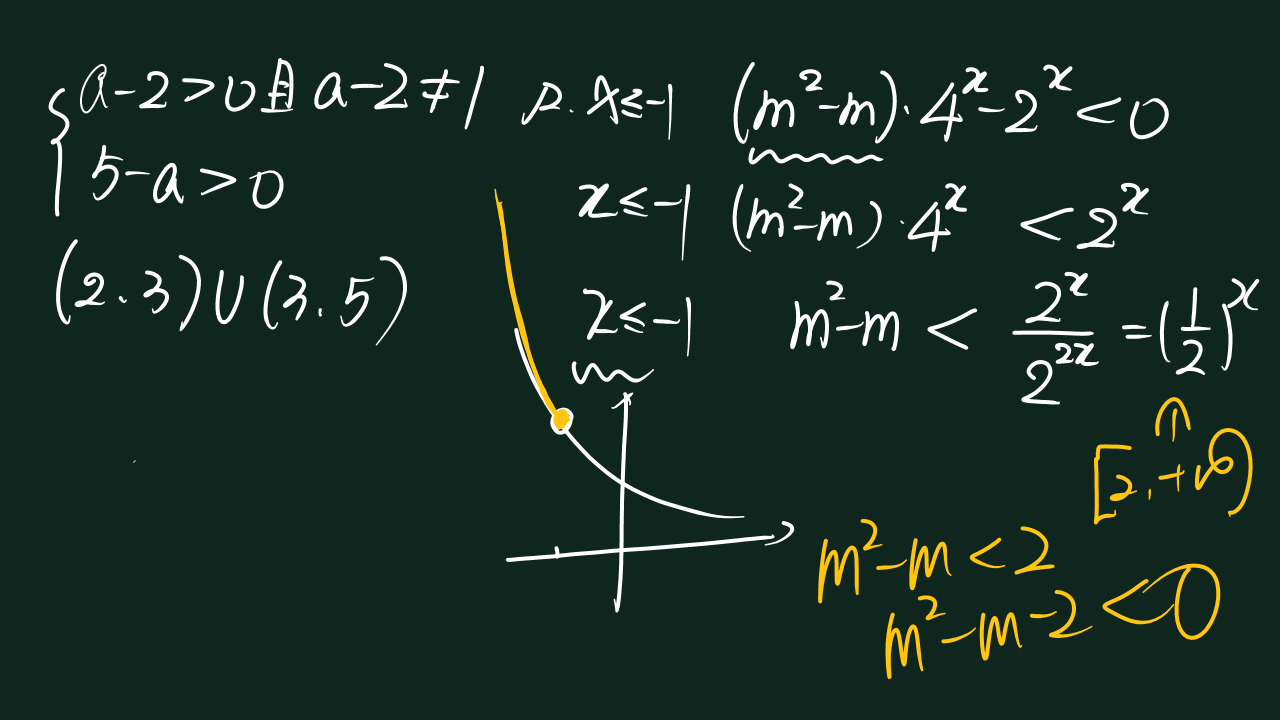 a-2>0且a-2≠1
5-a>0
(2.3)∪(3.5)
x≤-1 (m²-m)·4ˣ-2ˣ<0
x≤-1 (m²-m)·4ˣ <2ˣ
x≤-1 m²-m < 2ˣ/2²ˣ =(1/2)ˣ
[2,+∞)
m²-m<2
m²-m-2<0